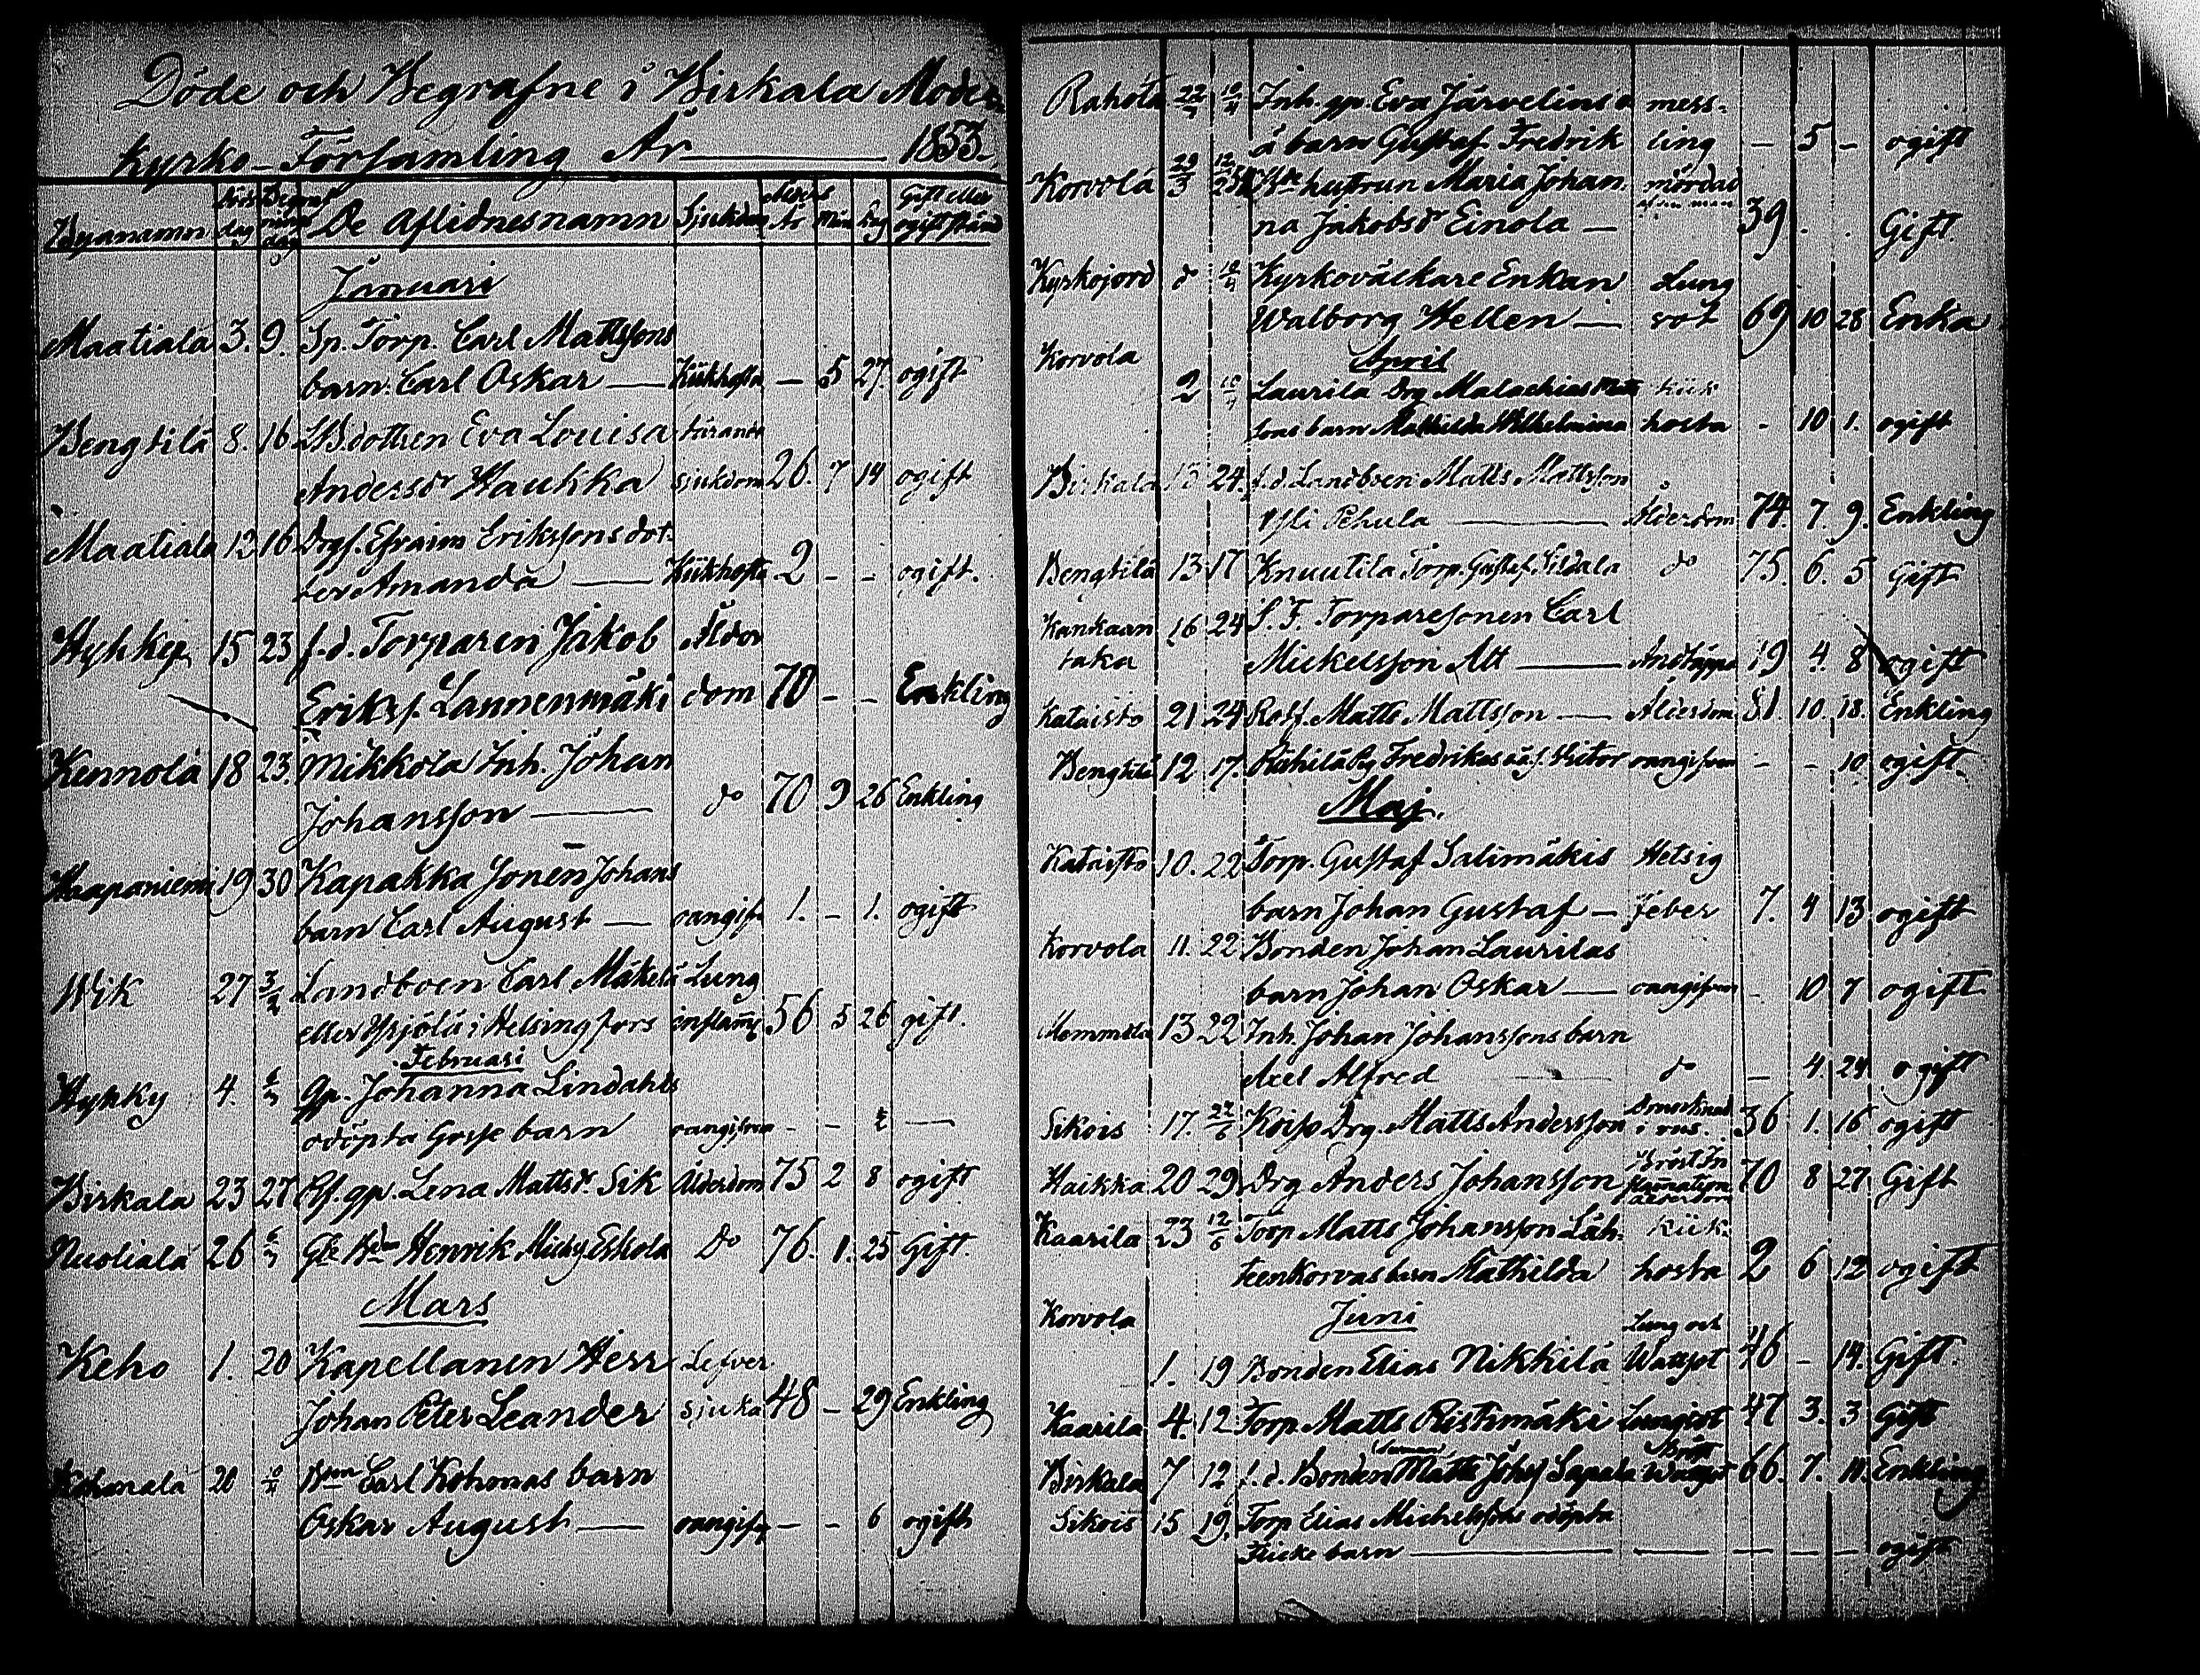 Döde och Begrafne i Birkala Moder
kyrko-Församling År — 1853.
Byanamn dag De Aflidnes namn Sjukdom År Mån Dag Gift eller ogift stånd
Januari
Maatiala 3. 9. Sp. Torp. Carl Mattssons
barn. Carl Oskar — Kikhosta — 5 27. ogift
Bengtilä 8. 16 dottren Eva Louisa tärande
Andersdr Haukka sjukdom 26. 7 14 ogift
Maatiala 13 16 Drgs. Efraim Erikssons dot-
ter Amanda — Kikhosta 2 - - ogift.
Hyhky 15 23 f.d. Torparen Jakob Ålder
Eriks. Launenmäki dom 70 - - Enkling
Kennolä 18 23. Mikkola Inh. Johan
Johansson — do 70 9 26 Enkling
Haapaniemi 19 30 Kapakka Johans
barn Carl August — oangif. 1. - 1. ogift
Wik 27 3/2 Landboen Carl Mäkelä Lung
eller Yrjölä i Helsingfors inflamm. 56 5 26 gift.
Februari
Hyhky 4. 6/3 Gp. Johanna Lindahls
odöpta Gosse barn oangifven - - ½ —
Birkala 23 27 gp. Lena Mattsdr. Sik Ålderdom 75 2 8 ogift
Nuoliala 26 6/3 Henrik Eskola Do 76. 1. 25 Gift.
Mars
Keho 1. 20 Kapellanen Herr Lefver
Johan Peter Leander sjuka 48 - 29 Enkling
Kohmala 20 10/4 Carl Kohonas barn
Oskar August — oangifv — - 6 ogift
Rahola 22/3 10/4 Inh. gp. Eva Järvelins o mess-
ä barn Gustaf Fredrik ling — 5 — ogift
Korvola hustrun Maria Johan- mördad af sin man
na Jakobsdr Einola — 39 . . Gift.
Kyrkojord d 10/4 Kyrkoväckare Enkan Lung
Walborg Hellen — sot 69 10 28 Enka
Korvola April
2 10/4 Laurila Drg Malachias Matts kik
sons barn Mathilda Wilhelmina hosta - 10 1. ogift
Birkala 13 24. f.d. Landboen Matts Mattsson
Yli Pehula — Ålderdom 74. 7. 9. Enkling
Bengtilä 13 17 Knuutila Torp. Gustaf Sildala do 75. 6. 5 Gift
Kankaan 16 24 S. F. Torparesonen Carl
taka Mickelsson Alt — Andtäppa 19 4. 8 ogift
Kataisto 21 24 Rotf. Matts Mattsson — Ålderdom 81. 10. 18. Enkling
Bengtilä 12 17. Fredrikas oä. s. Victor oangifven - - 10 ogift.
Maj.
Kataisto 10. 22 Torp. Gustaf Salimäkis Hetsig
barn Johan Gustaf — feber 7. 4 13 ogift
Korvola 11. 22 Bonden Johan Laurilas
barn Johan Oskar — oangifven - 10 7 ogift.
13 22 Inh. Johan Johanssons barn
Axel Alfred — do — 4 24 ogift
Sikois 17. Drg. Matts Andersson 36 1. 16 ogift
Haikka 20 29 Drg Anders Johansson Bröst In flammation ålderdom 70 8 27 Gift
Kaarila 23 12/6 Torp Matts Johansson Läh- kik-
teenkorvas barn Mathilda hosta 2 6 12 ogift
Korvola Juni
1. 19 Bonden Elias Nikkilä Lung och Wattsot 46 — 14. Gift.
Kaarila 4. 12 Torp. Matts Ristimäki Lungsot 47 3. 3 Gift
Birkala 7 12 f.d. Bonden Matts Johs Sapala Bröst Wattsot 66. 7. 11. Enkling
Sikois 15 19. Torp Elias Michelssons odöpta
Flicke barn — — — — — ogift